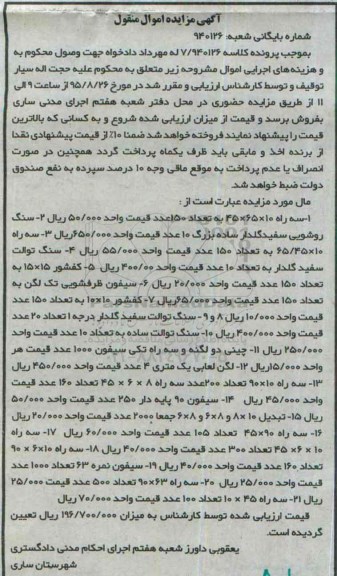 آگهی مزایده اموال منقول
شماره بایگانی شعبه: ۹۴۰۱۲۶
بموجب پرونده کلاسه ۷/۹۴۰۱۲۶ له مهرداد دادخواه جهت وصول محکوم به
و هزینه‌های اجرایی اموال مشروحه زیر متعلق به محکوم علیه حجت اله سیار
توقیف و توسط کارشناس ارزیابی و مقرر شد در مورخ ۹۵/۸/۲۶ از ساعت ۹ الی
۱۱ از طریق مزایده حضوری در محل دفتر شعبه هفتم اجرای مدنی ساری
بفروش برسد و قیمت از میزان ارزیابی شده شروع و به کسانی که بالاترین
قیمت را پیشنهاد نمایند فروخته خواهد شد ضمنا ۱۰٪ از قیمت پیشنهادی نقدا
از برنده اخذ و مابقی باید ظرف یکماه پرداخت گردد همچنین در صورت
انصراف یا عدم پرداخت به موقع مابقی وجه ۱۰ درصد سپرده به نفع صندوق
دولت ضبط خواهد شد.
مال مورد مزایده عبارت است از :
۱-سه راه ۱۰×۶۵×۴۵ به تعداد ۱۵۰عدد قیمت واحد ۵۰/۰۰۰ ریال ۲- سنگ
روشویی سفیدگلدار ساده بزرگ ۱۰ عدد قیمت واحد ۶۵۰/۰۰۰ریال ۳- سه راه
۶۵/۴۵×۱۰ به تعداد ۱۵۰ عدد قیمت واحد ۵۵/۰۰۰ ریال ۴- سنگ توالت
سفید گلدار به تعداد ۱۰ عدد قیمت واحد ۴۰۰/۰۰۰ ریال ۵- کفشور ۱۵×۱۵ به
تعداد ۱۵۰ عدد قیمت واحد ۲۰/۰۰۰ ریال ۶- سیفون ظرفشویی تک لگن به
تعداد ۱۵۰ عدد قیمت واحد ۶۵/۰۰۰ریال ۷- کفشور ۱۰×۱۰ به تعداد ۱۵۰ عدد
قیمت واحد ۱۰/۰۰۰ ریال ۸ و ۹ - سنگ توالت سفید گلدار درجه۱ تعداد ۲۰ عدد
قیمت واحد ۴۰۰/۰۰۰ ریال ۱۰- سنگ توالت ساده به تعداد ۱۰ عدد قیمت واحد
۲۵۰/۰۰۰ ریال ۱۱- چینی دو لگنه و سه راه تکی سیفون ۱۰۰۰ عدد قیمت هر
واحد ۱۵/۰۰۰ریال ۱۲- لگن لعابی یک متری ۴ عدد قیمت واحد ۴۵۰/۰۰۰ ریال
۱۳- سه راه ۱۰×۹۰ تعداد ۲۰۰عدد سه راه ۸ × ۶ × ۴۵ تعداد ۱۶۰ عدد قیمت
واحد ۴۵/۰۰۰ ریال ۱۴- سیفون ۹۰ پایه دار ۲۵۰ عدد قیمت واحد ۵۰/۰۰۰
ریال ۱۵- تبدیل ۱۰×۸ و ۸×۶ و ۸×۶ جمعا ۲۰۰۰ عدد قیمت واحد ۲۰/۰۰۰ ریال
۱۶- سه راه ۹۰×۴۵ تعداد ۱۰۵ عدد قیمت واحد ۶۰/۰۰۰ ریال ۱۷- سه راه
۱۰ × ۶× ۴۵ تعداد ۳۰۰ عدد قیمت واحد ۴۰/۰۰۰ ریال ۱۸- سه راه ۱۰×۶ × ۹۰
تعداد ۱۶۰ عدد قیمت واحد ۴۰/۰۰۰ ریال ۱۹- سیفون نمره ۶۳ تعداد ۱۰۰۰ عدد
قیمت واحد ۲۵/۰۰۰ ریال ۲۰- سه راه ۶۳×۹۰ تعداد ۵۰۰ عدد قیمت ۲۵/۰۰۰
ریال ۲۱- سه راه ۴۵ × ۱۰ تعداد ۱۰۰ عدد قیمت واحد ۷۰/۰۰۰ ریال
قیمت ارزیابی شده توسط کارشناس به میزان ۱۹۶/۷۰۰/۰۰۰ ریال تعیین
گردیده است.
یعقوبی داورز شعبه هفتم اجرای احکام مدنی دادگستری
شهرستان ساری